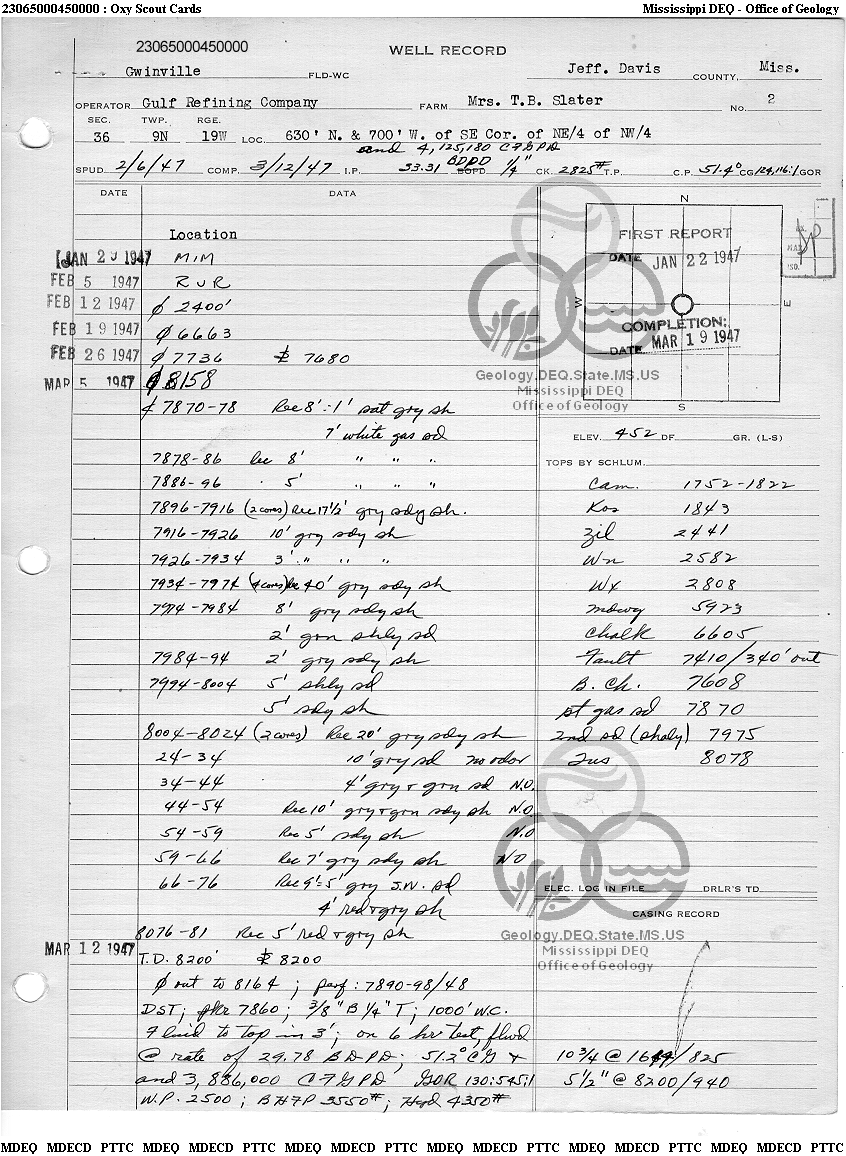 23065000450000 : Oxy Scout Cards Mississippi DEQ - Office of Geology
23065000450000 WELL RECORD
Gwinville FLD-WC Jeff. Davis COUNTY, Miss.
OPERATOR Gulf Refining Company FARM Mrs. T.B. Slater No. 2
SEC. TWP. RGE.
36 9N 19W LOC. 630' N. & 700' W. of SE Cor. of NE/4 of NW/4
and 4,125,180 CFGPD
SPUD 2/6/47 COMP. 3/12/47 I.P. 33.31 BDPD 1/4" CK. 2825# T.P. C.P. 51.4° CG 124,116:1 GOR
DATE DATA
N
W
E
S
FIRST REPORT
DATE JAN 22 1947
COMPLETION:
DATE MAR 19 1947
Location
JAN 29 1947 MIM
FEB 5 1947 RUR
FEB 12 1947 ⌀ 2400'
FEB 19 1947 ⌀ 6663
FEB 26 1947 ⌀ 7736 7680
MAR 5 1947 ⌀ 8158
Geology.DEQ.State.MS.US
Mississippi DEQ
Office of Geology
7870-78 Rec 8': 1' sat gry sh
7' white gas sd
7878-86 Rec 8' " " "
7886-96 5' " " "
7896-7916 (2 cores) Rec 17 1/2' gry sdy sh.
7916-7926 10' gry sdy sh
7926-7934 3' " " "
7934-7974 (4 cores) Rec 40' gry sdy sh
7974-7984 8' gry sdy sh
2' grn shly sd
7984-94 2' gry sdy sh
7994-8004 5' shly sd
5' sdy sh
8004-8024 (2 cores) Rec 20' gry sdy sh
24-34 10' gry sd no odor
34-44 4' gry & grn sd N.O.
44-54 Rec 10' gry & grn sdy sh N.O.
54-59 Rec 5' sdy sh N.O
59-66 Rec 7' gry sdy sh NO
66-76 Rec 9' = 5' gry S.W. sd
4' red & gry sh
8076-81 Rec 5' red & gry sh
MAR 12 1947 T.D. 8200' 8200
⌀ out to 8164 ; perf: 7890-98/48
DST; pkr 7860 ; 3/8" B 1/4" T ; 1000' W.C.
Fluid to top in 3'; on 6 hr test, flwd
@ rate of 29.78 BDPD; 51.2° CG &
and 3,886,000 CFGPD GOR 130:545:1
W.P. 2500 ; BHFP 3550# ; Hyd 4350#
ELEV. 452 DF. GR. (L-S)
TOPS BY SCHLUM.
Cam. 1752-1822
Kos 1843
Zil 2441
Wn 2582
Wx 2808
mdwy 5923
Chalk 6605
Fault 7410/340' out
B. Ch. 7608
pt gas sd 7870
2nd sd (shaly) 7975
Tus 8078
ELEC. LOG IN FILE DRLR'S TD.
CASING RECORD
Geology.DEQ.State.MS.US
Mississippi DEQ
Office of Geology
5 1/2" @ 8200/940
MDEQ MDECD PTTC MDEQ MDECD PTTC MDEQ MDECD PTTC MDEQ MDECD PTTC MDEQ MDECD PTTC MDEQ MDECD PTTC